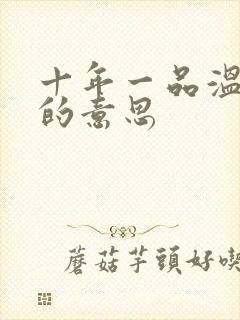 十年一品溫
的意思
蘑菇芋頭好喫